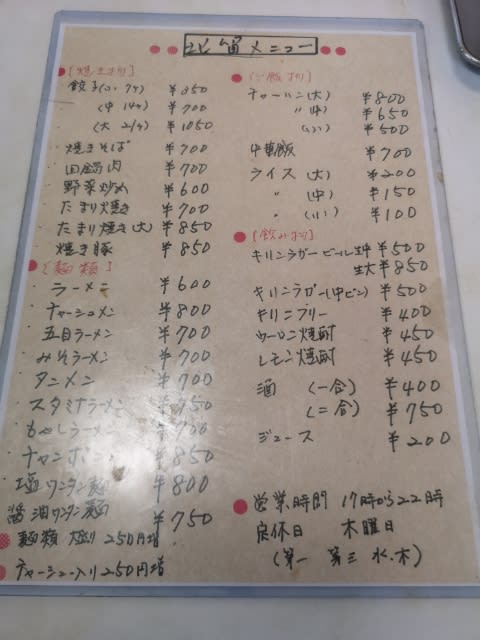 メニュー
餃子(小 7ケ) ¥350
(中 14ケ) ¥700
(大 21ケ) ¥1050
焼きそば ¥700
回鍋肉 ¥700
野菜炒め ¥600
たまり焼き ¥700
たまり焼き(大) ¥850
焼き豚 ¥850
[麺類]
ラーメン ¥600
チャーシュメン ¥800
五目ラーメン ¥700
みそラーメン ¥700
タンメン ¥700
スタミナラーメン
もやしラーメン ¥700
チャンポン ¥850
塩ワンタン麺 ¥800
醤油ワンタン麺 ¥750
麺類 大盛り 250円増
チャーシュー入り 250円増
[ご飯物]
チャーハン(大) ¥800
〃 (中) ¥650
(小) ¥500
中華飯 ¥700
ライス (大) ¥200
〃 (中) ¥150
〃 (小) ¥100
[飲み物]
キリンラガービール 生中 ¥500
生大 ¥850
キリンラガー(中ビン) ¥500
キリンフリー ¥400
ウーロン焼酎 ¥450
レモン焼酎 ¥450
酒 (一合) ¥400
(二合) ¥750
ジュース ¥200
営業時間 17時から22時
定休日 木曜日
(第一 第三 水・木)